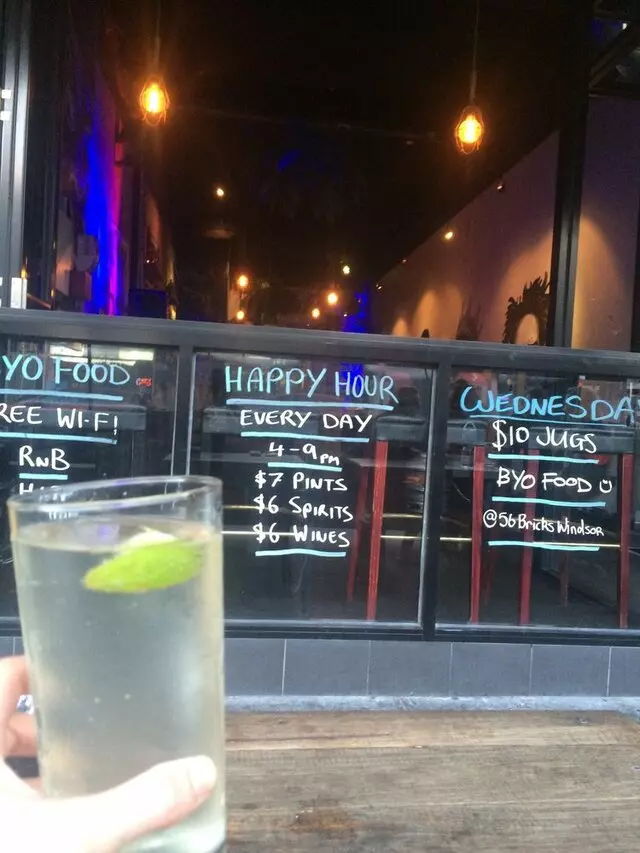 YO FOOD
REE WI-FI!
RNB
HAPPY HOUR
EVERY DAY
4-9PM
$7 PINTS
$6 SPIRITS
$6 WINES
WEDNESDA
$10 JUGS
BYO FOOD
@56BRICKS WINDSOR